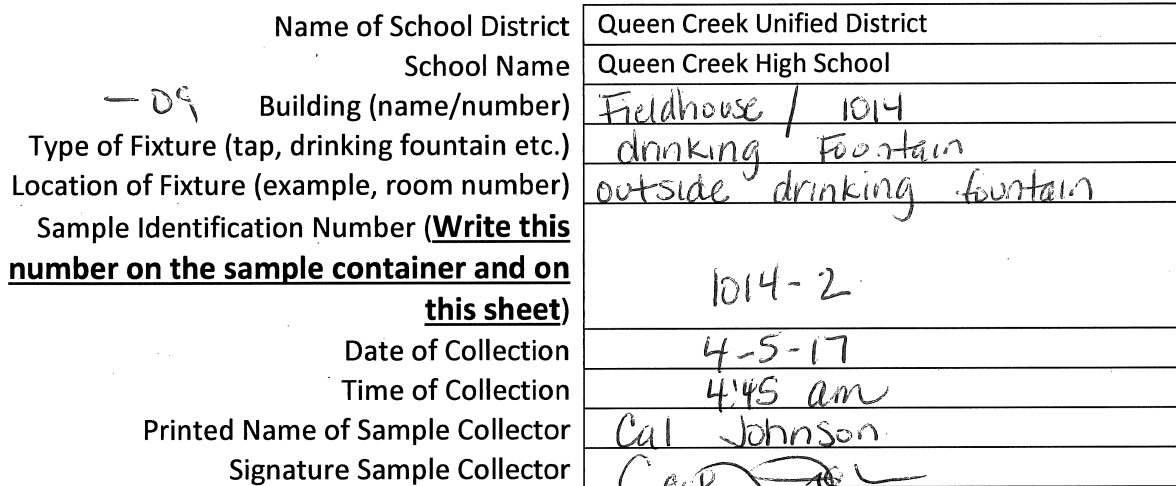 Name of School District Queen Creek Unified District
School Name Queen Creek High School
- 09 Building (name/number) Fieldhouse / 1014
Type of Fixture (tap, drinking fountain etc.) drinking Fountain
Location of Fixture (example, room number) outside drinking fountain
Sample Identification Number (Write this
number on the sample container and on
this sheet) 1014-2
Date of Collection 4-5-17
Time of Collection 4:45 am
Printed Name of Sample Collector Cal Johnson
Signature Sample Collector